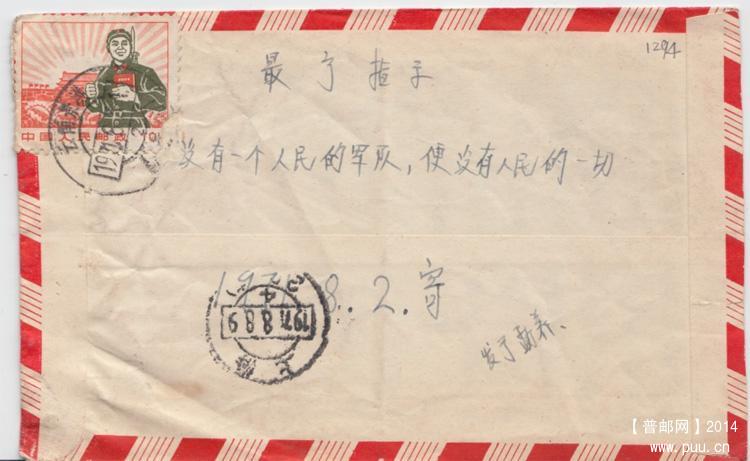 1294
最高指示
中国人民邮政 10
没有一个人民的军队，便没有人民的一切
1971.8.2.寄
上海
1971.8.8.9
发于勐养、
【普邮网】2014
www.puu.cn